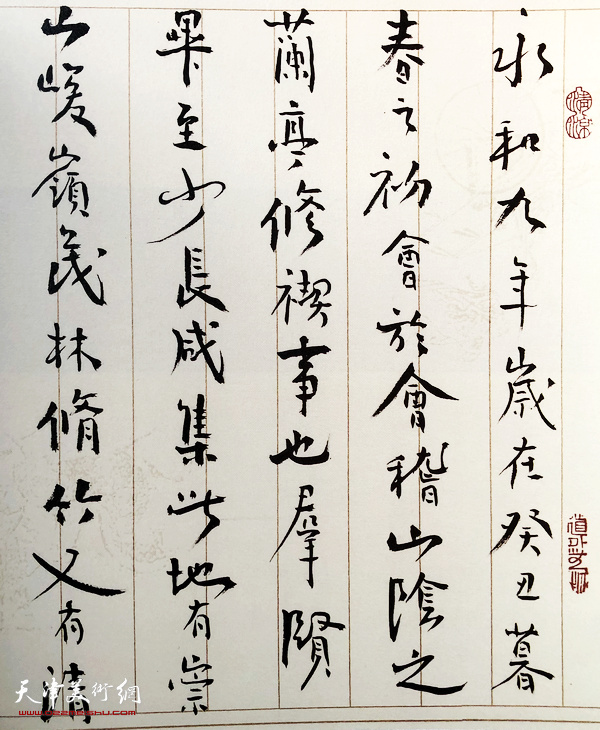 永和九年歲在癸丑暮
春之初會於會稽山陰之
蘭亭修禊事也羣賢
畢至少長咸集此地有崇
山峻嶺茂林脩竹又有清
天津美術網